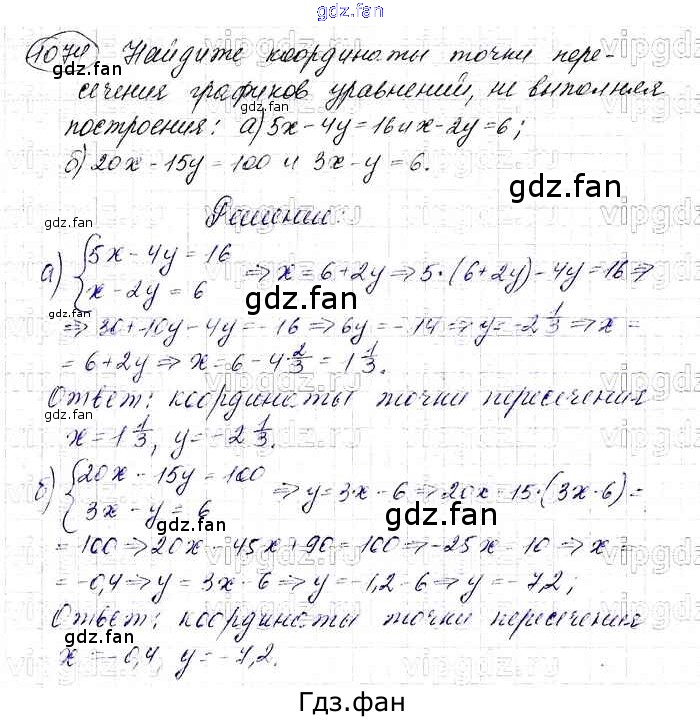 gdz.fan
1074 Найдите координаты точки пере-
сечения графиков уравнений, не выполняя
построения: а) 5x - 4y = 16 и x - 2y = 6;
б) 20x - 15y = 100 и 3x - y = 6.
Решение:
а) { 5x - 4y = 16
x - 2y = 6 ⇒ x = 6 + 2y ⇒ 5·(6 + 2y) - 4y = 16 ⇒
⇒ 30 + 10y - 4y = 16 ⇒ 6y = -14 ⇒ y = -2 1/3 ⇒ x =
= 6 + 2y ⇒ x = 6 - 4 2/3 = 1 1/3.
Ответ: координаты точки пересечения
x = 1 1/3, y = -2 1/3.
б) { 20x - 15y = 100
3x - y = 6 ⇒ y = 3x - 6 ⇒ 20x - 15·(3x - 6) =
= 100 ⇒ 20x - 45x + 90 = 100 ⇒ -25x = 10 ⇒ x =
= -0,4 ⇒ y = 3x - 6 ⇒ y = -1,2 - 6 ⇒ y = -7,2;
Ответ: координаты точки пересечения
x = -0,4, y = -7,2.
Гдз.фан